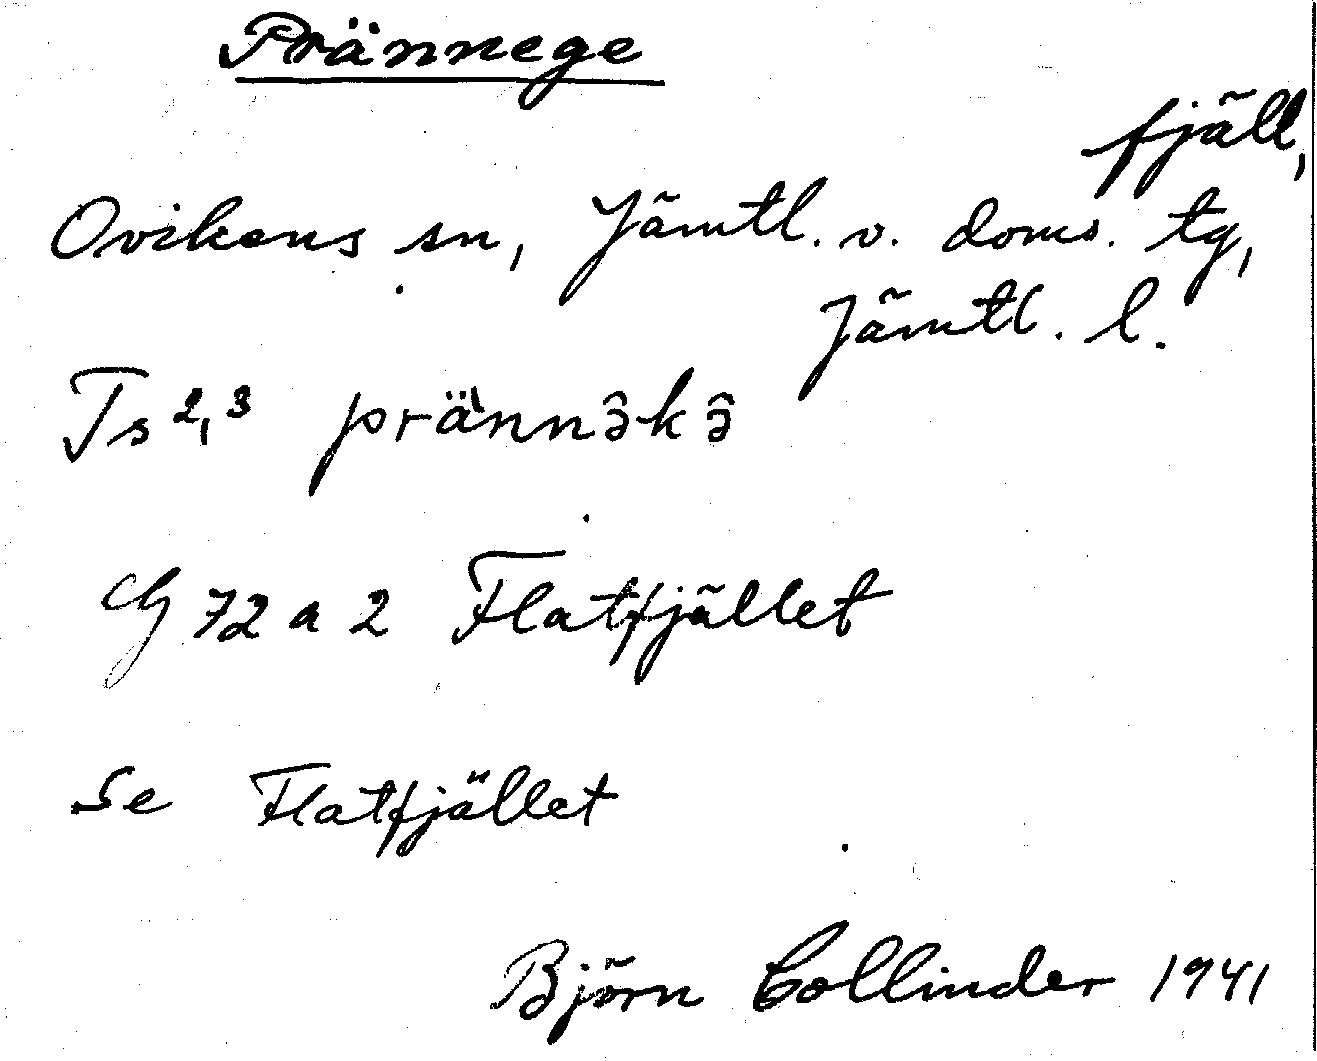 Prännege
fjäll,
Ovikens sn, Jämtl. v. doms. tg,
Jämtl. l.
Ts 2,3 prä̀nnə̂kə̂
G 72 a 2 Flatfjället
Se Flatfjället
Björn Collinder 1941